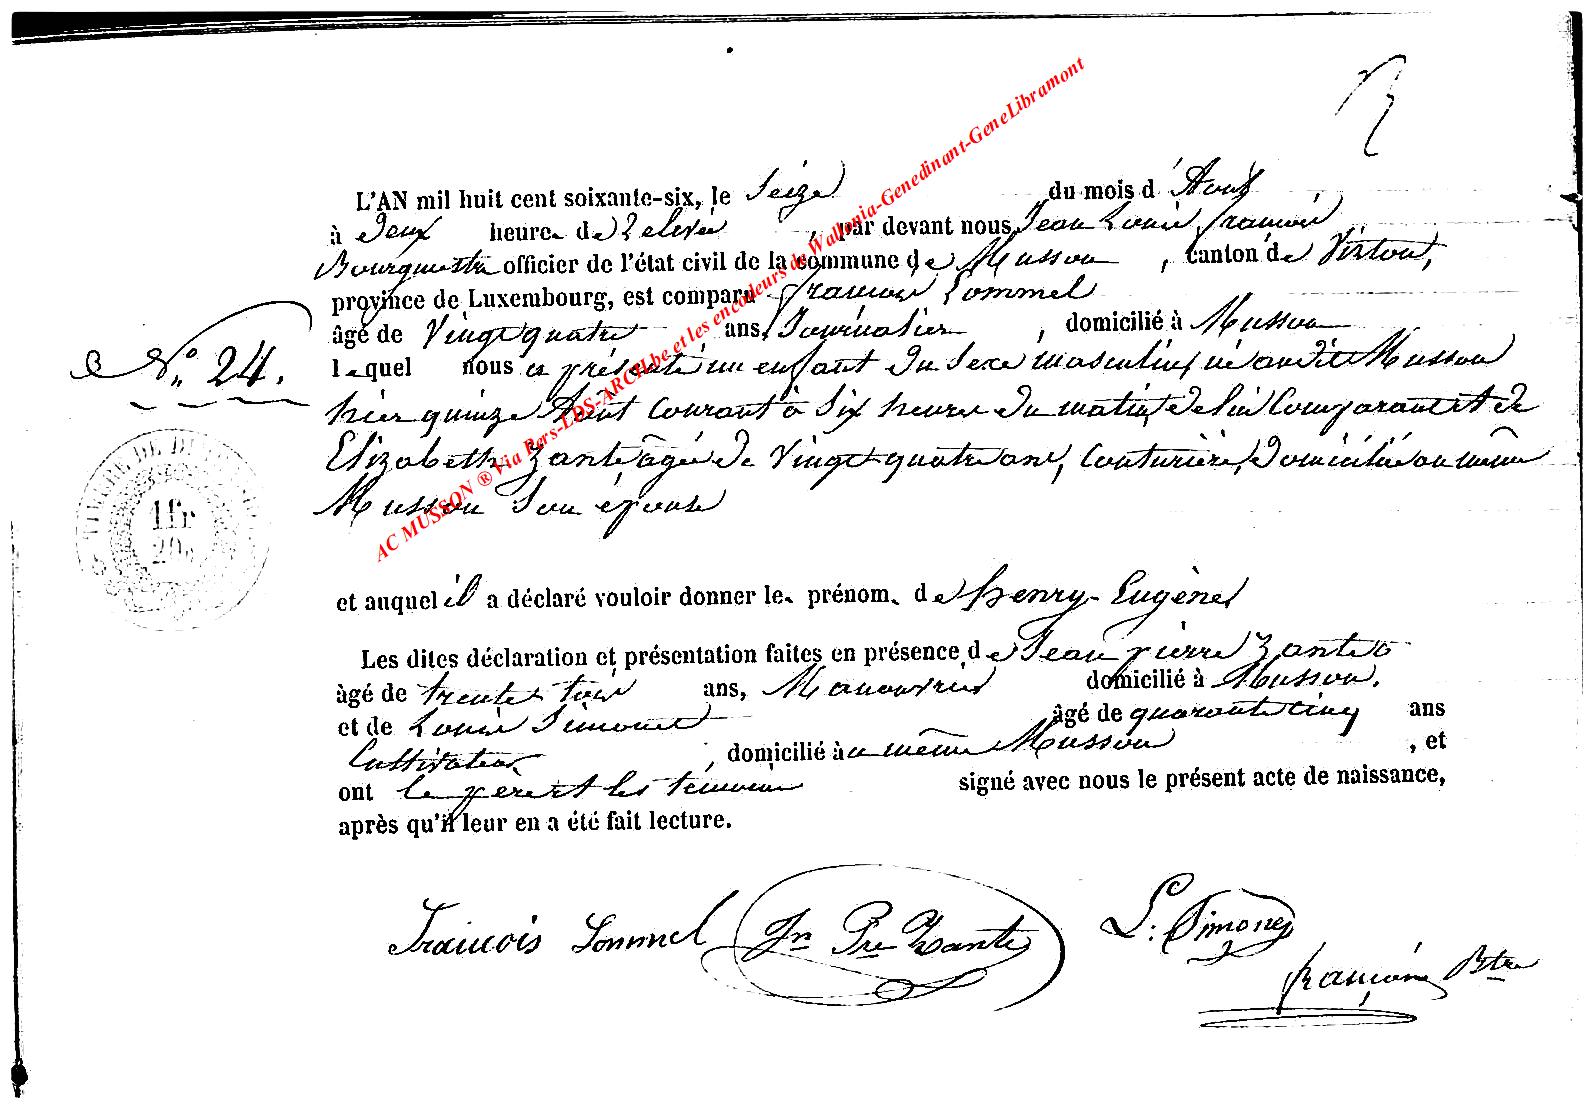 L'AN mil huit cent soixante-six, le Seize du mois d'Août
à Deux heure de Relevée, par devant nous Jean Louis François
Bourgmestre officier de l'état civil de la commune de Musson, canton de Virton,
province de Luxembourg, est comparu François Lommel
âgé de Vingt quatre ans, Journalier, domicilié à Musson
N° 24.
lequel nous a présenté un enfant du sexe masculin, né audit Musson
hier quinze Août courant à six heures du matin, de lui comparant et de
Elizabeth Zante âgée de Vingt quatre ans, Couturière, domiciliée au même
Musson son épouse
TIMBRE DE
1 fr
20c
et auquel il a déclaré vouloir donner le prénom de Henry-Eugène
Les dites déclaration et présentation faites en présence de Jean pierre Zante
âgé de trente trois ans, Manouvrier domicilié à Musson.
et de Louis Simonet âgé de quarante cinq ans
Cultivateur, domicilié au même Musson, et
ont le père et les témoins signé avec nous le présent acte de naissance,
après qu'il leur en a été fait lecture.
François Lommel Jn Pre Zante L: Simonet
François Btre
AC MUSSON ® Via Pers-LDS-ARCH.be et les encodeurs de Wallonia-Genedinant-GeneLibramont